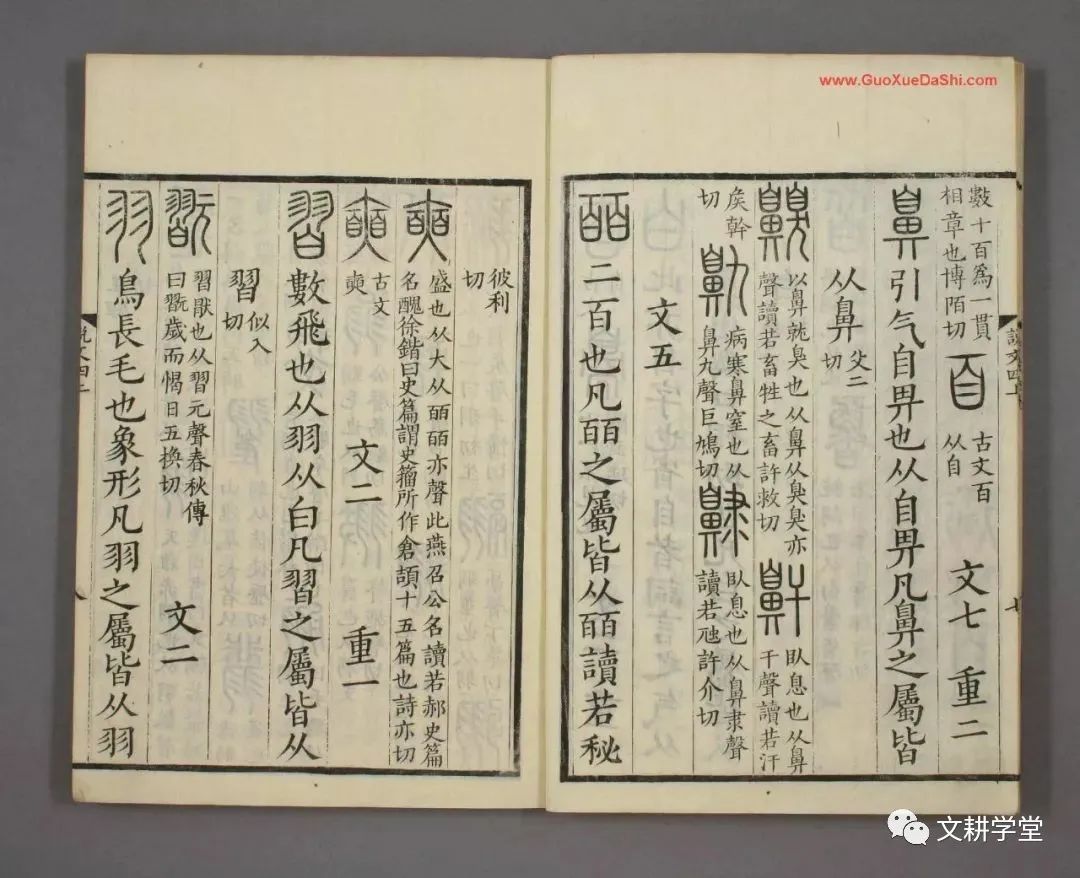 www.GuoXueDaShi.com
數十百為一貫相章也博陌切百古文百从自 文七 重二
鼻引气自畀也从自畀凡鼻之屬皆
从鼻父二切
齅以鼻就臭也从鼻从臭臭亦聲讀若畜牲之畜許救切鼾臥息也从鼻干聲讀若汗
矦幹切鼽病寒鼻窒也从鼻九聲巨鳩切齂臥息也从鼻隶聲讀若虺許介切
文五
皕二百也凡皕之屬皆从皕讀若秘
彼利切
奭盛也从大从皕皕亦聲此燕召公名讀若郝史篇名醜徐鍇曰史篇謂史籀所作倉頡十五篇也詩亦切
奭古文奭 文二 重一
習數飛也从羽从白凡習之屬皆从
習似入切
翫習猒也从習元聲春秋傳曰翫歲而愒日五換切 文二
羽鳥長毛也象形凡羽之屬皆从羽
八
文耕学堂